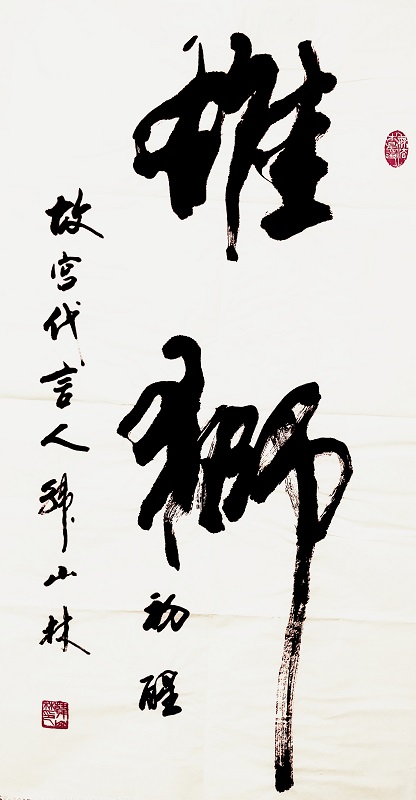 雄狮
初醒
故宫代言人韩山林